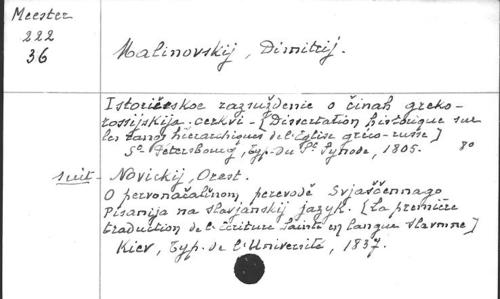 Meester
222
36
Malinovskij, Dimitrij.
Istoričeskoe razsuždenie o činah greko-
rossijskija cerkvi. - [Dissertation historique sur
les rangs hiérarchiques de l'Eglise gréco-russe]
St Petersbourg, typ. du St Synode, 1805. 8º
suit - Novickij, Orest.
O pervonačalinom perevodě Svjaščennago
Pisanija na slavjanskij jazyk. [La première
traduction de l'Ecriture Sainte en langue slavonne]
Kiev, Typ. de l'Université, 1837.